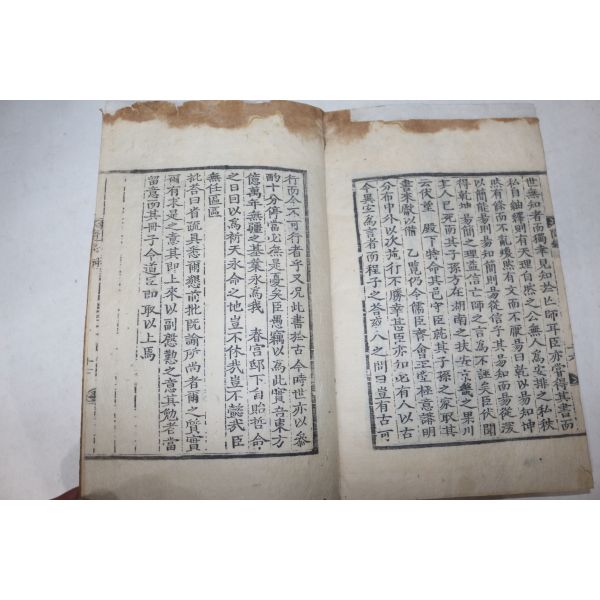 世無知者而獨幸見知於亡師耳臣亦嘗得其書而
私自紬繹則有天理自然之公無人爲安排之私秩
然有餘而不亂煥然有文而不厭易曰乾以易知坤
以簡能易則易知簡則易從信乎其易知而易從深
得乾坤易簡之理益信亡師之言爲不誣矣臣伏聞
主人已死而其子孫方在湖南之扶安京畿之果川
云伏望 殿下特命其邑守臣就其子孫之家取其
書來獻以備 乙覽仍令儒臣齊會 堂極意講明
分布中外以次施行不勝幸甚臣亦知必有人以古
今異宜爲言者而程子之答或人之問曰豈有古可
行而今不可行者乎又况此書於古今時世亦以參
酌十分停當必無是憂矣臣愚竊以爲此實吾東方
億萬年無疆之基業永爲我 春宮邸下自貽哲命
之日因以爲祈天永命之地豈不休哉豈不懿哉臣
無任區區
批答曰省疏具悉爾懇前批旣諭所尚者爾之質實
爾有求是之意其卽上來以副慇懃之意其勉者當
留意而其冊子令道臣卽取以上焉